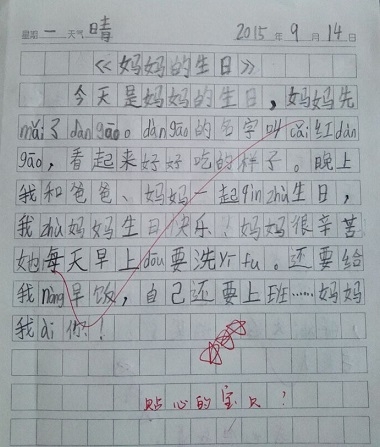 星期一 天气晴 2015年9月14日
《妈妈的生日》
今天是妈妈的生日，妈妈先
mǎi了dàngāo。dàngāo的名字叫cǎi红dàn
gāo，看起来好好吃的样子。晚上
我和爸爸、妈妈一起qìnzhù生日，
我zhù妈妈生日快乐！妈妈很辛苦
她每天早上dōu要洗yīfu。还要给
我nòng早饭，自己还要上班……妈妈
我ài你！
贴心的宝贝！